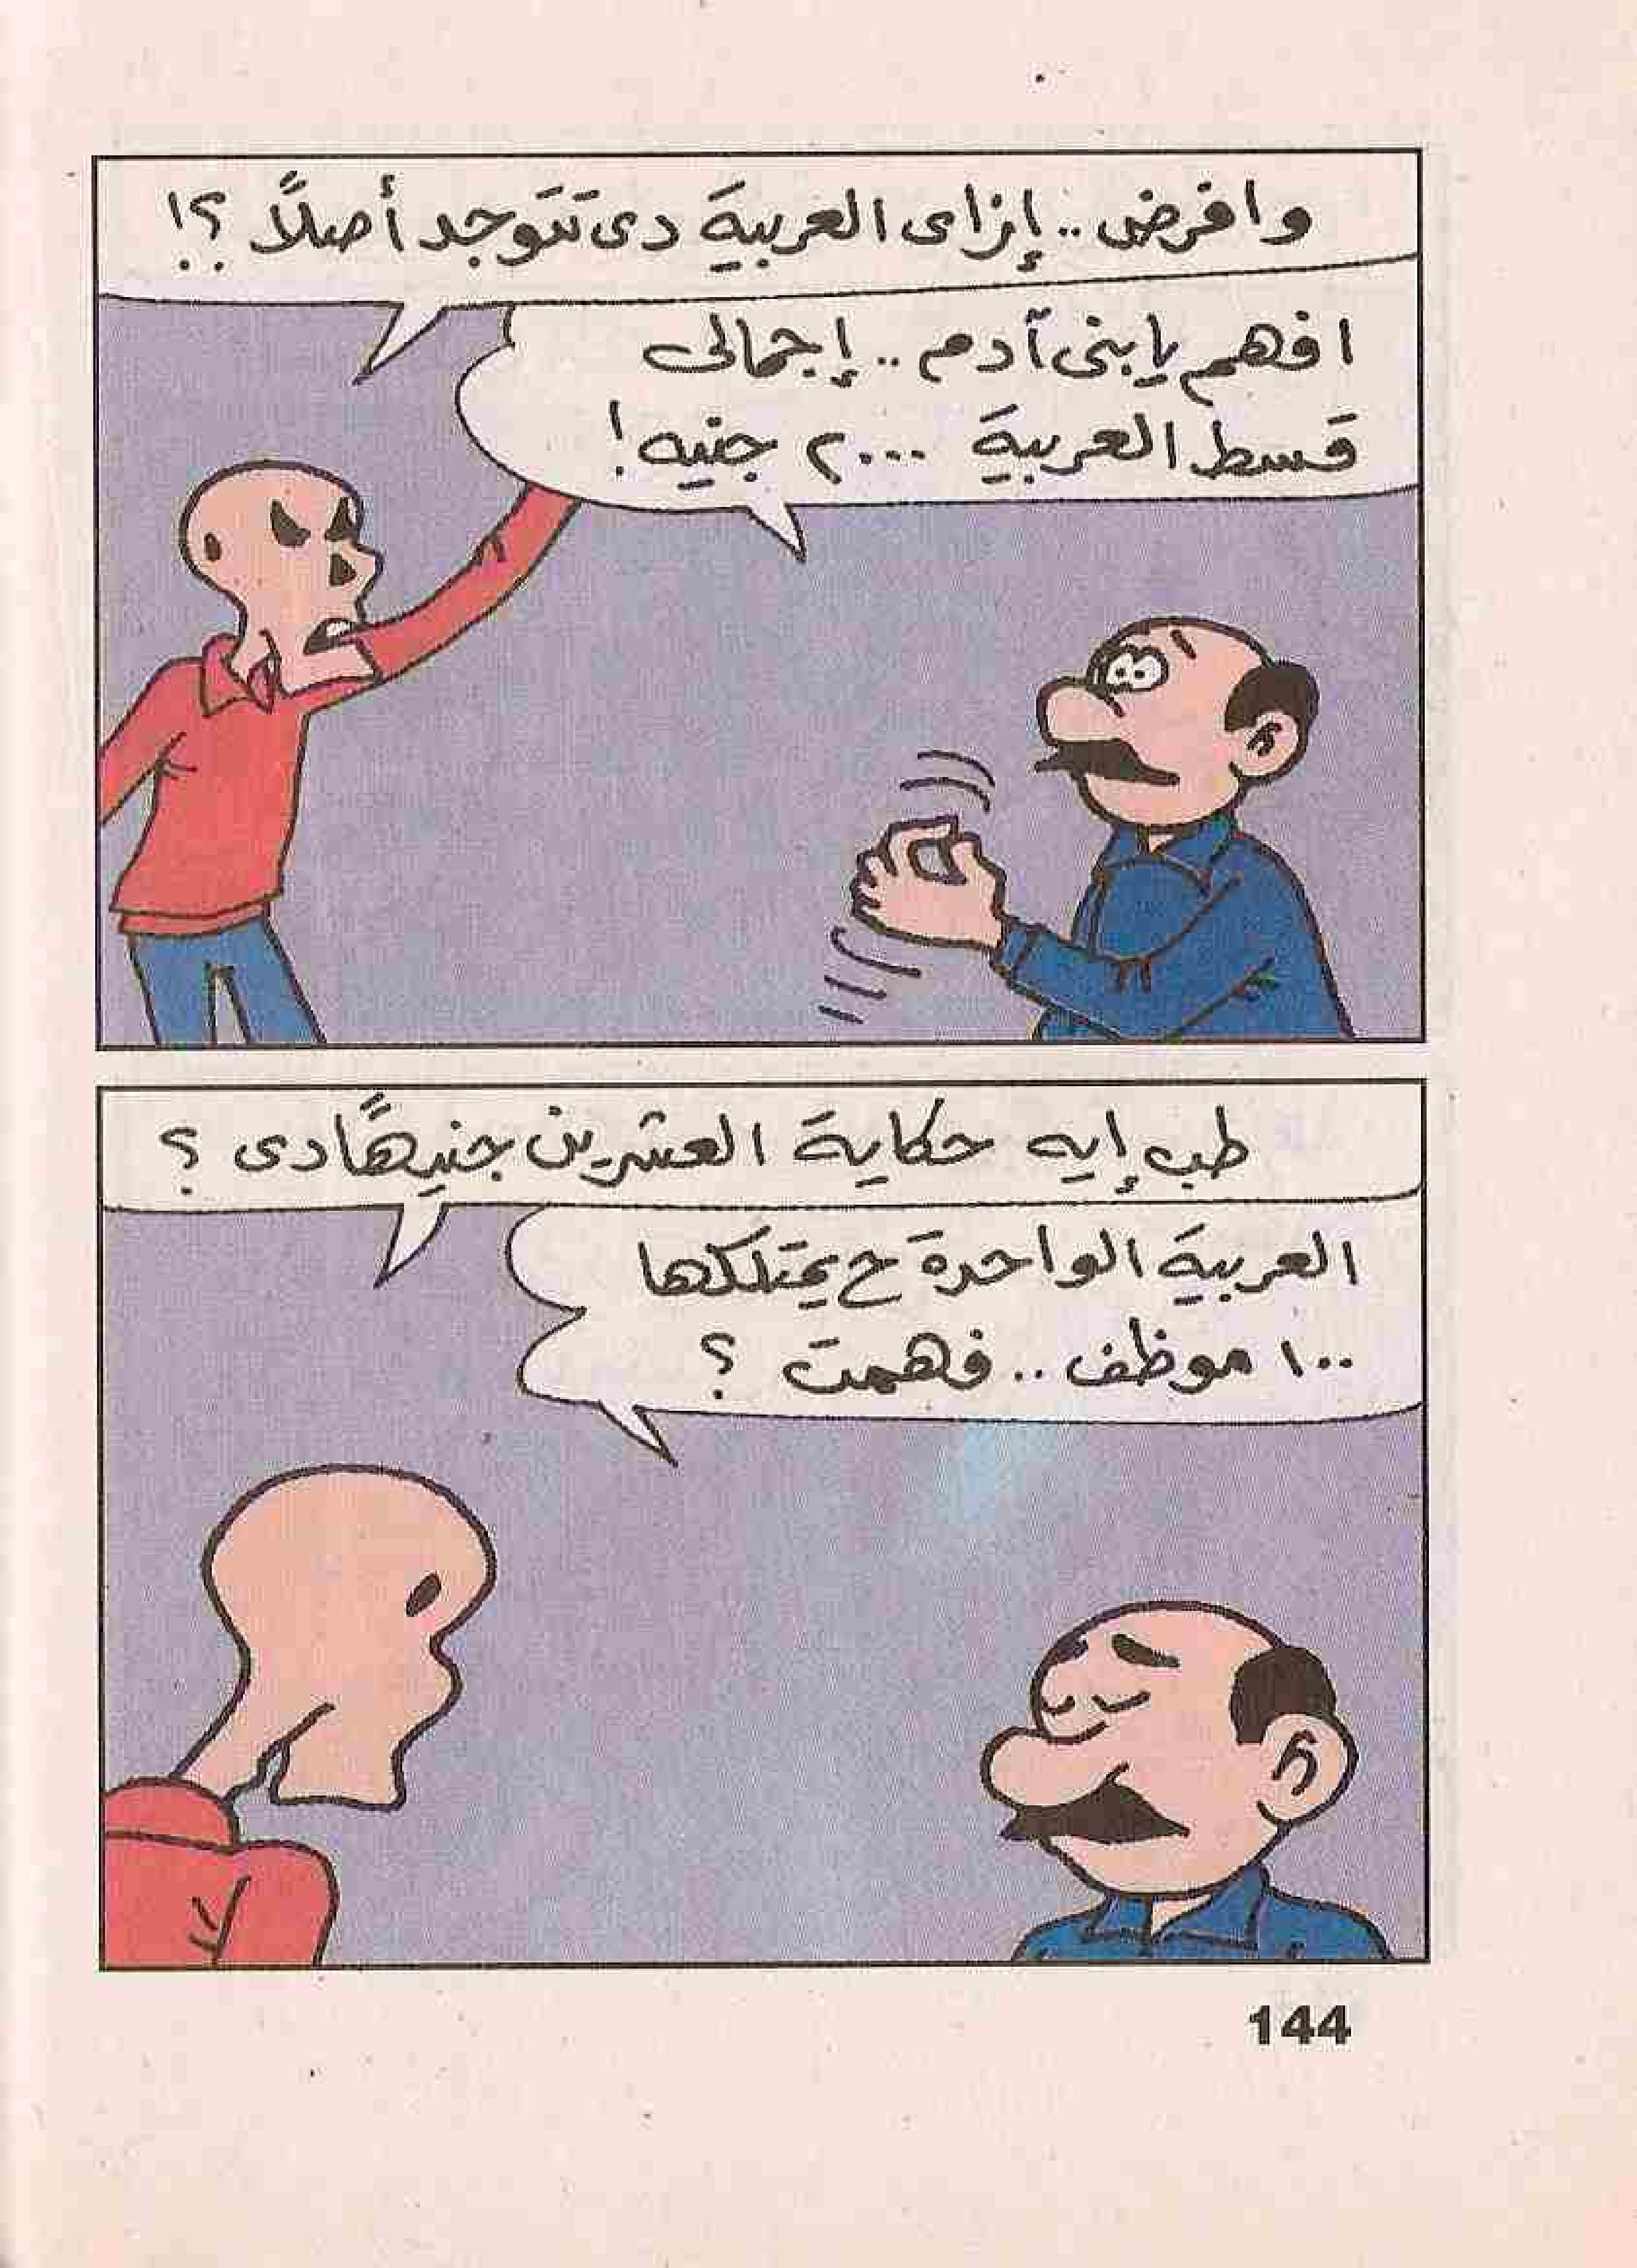 وافرض.. إزاى العربيةَ دى تتَوَجد أصلاً ؟!
افهم يا بنى آدم .. إجمالى
قسط العربيةَ ٢٠٠٠ جنيه !
طب إيه حكاية العشرين جنيهًا دى ؟
العربيةَ الواحدة ح يمتلكها
١٠٠ موظف .. فهمت ؟
144